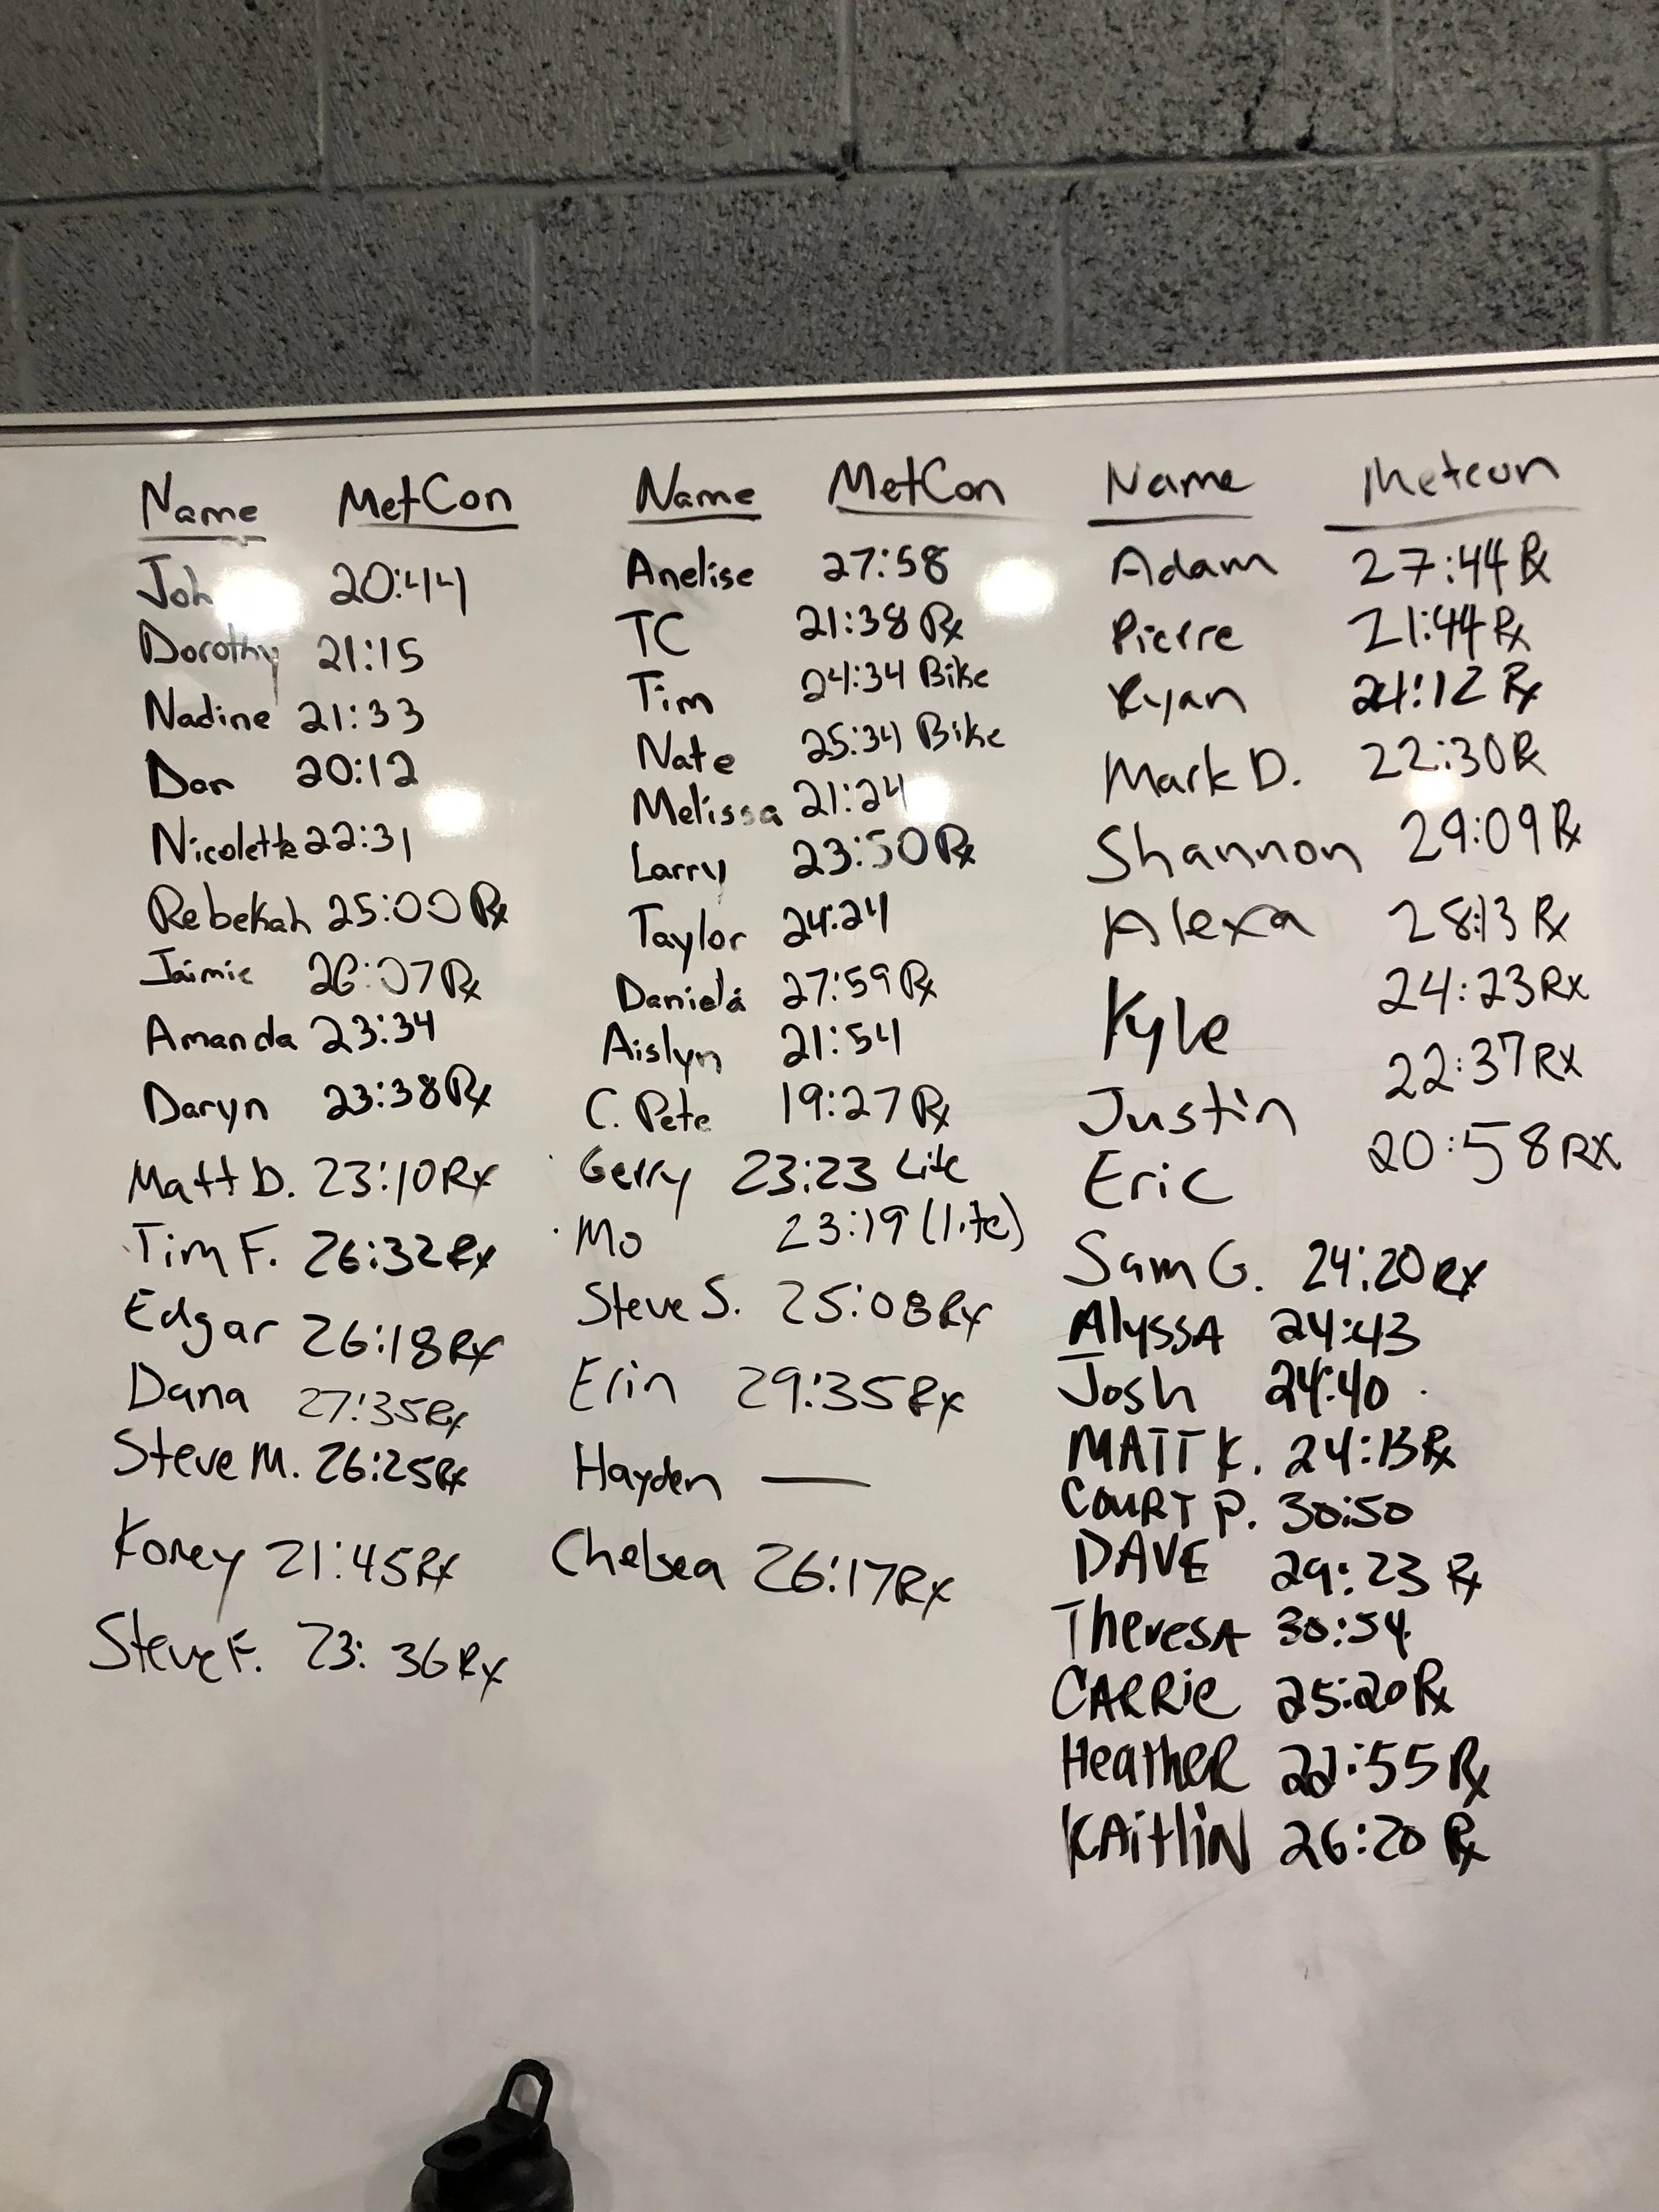 Name MetCon
20:44
Dorothy 21:15
Nadine 21:33
Dan 20:12
Nicolette 22:31
Rebekah 25:00 Rx
Jaimie 26:07 Rx
Amanda 23:34
Daryn 23:38 Rx
Matt D. 23:10 Rx
Tim F. 26:32 Rx
Edgar 26:18 Rx
Dana 27:35 Rx
Steve M. 26:25 Rx
Korey 21:45 Rx
Steve F. 23:36 Rx
Name MetCon
Anelise 27:58
TC 21:38 Rx
Tim 24:34 Bike
Nate 25:34 Bike
Melissa 21:24
Larry 23:50 Rx
Taylor 24:24
Daniela 27:59 Rx
Aislyn 21:54
C. Pete 19:27 Rx
Gerry 23:23 Lite
Mo 23:19 (lite)
Steve S. 25:08 Rx
Erin 29:35 Rx
Hayden —
Chelsea 26:17 Rx
Name Metcon
Adam 27:44 Rx
Pierre 21:44 Rx
Ryan 24:12 Rx
Mark D. 22:30 Rx
Shannon 29:09 Rx
Alexa 28:13 Rx
Kyle 24:23 Rx
Justin 22:37 Rx
Eric 20:58 RX
Sam G. 24:20 Rx
AlyssA 24:43
Josh 24:40
MATT K. 24:13 Rx
COURT P. 30:50
DAVE 29:23 Rx
TheresA 30:54
CARRie 25:20 Rx
HeatheR 22:55 Rx
KAitliN 26:20 Rx